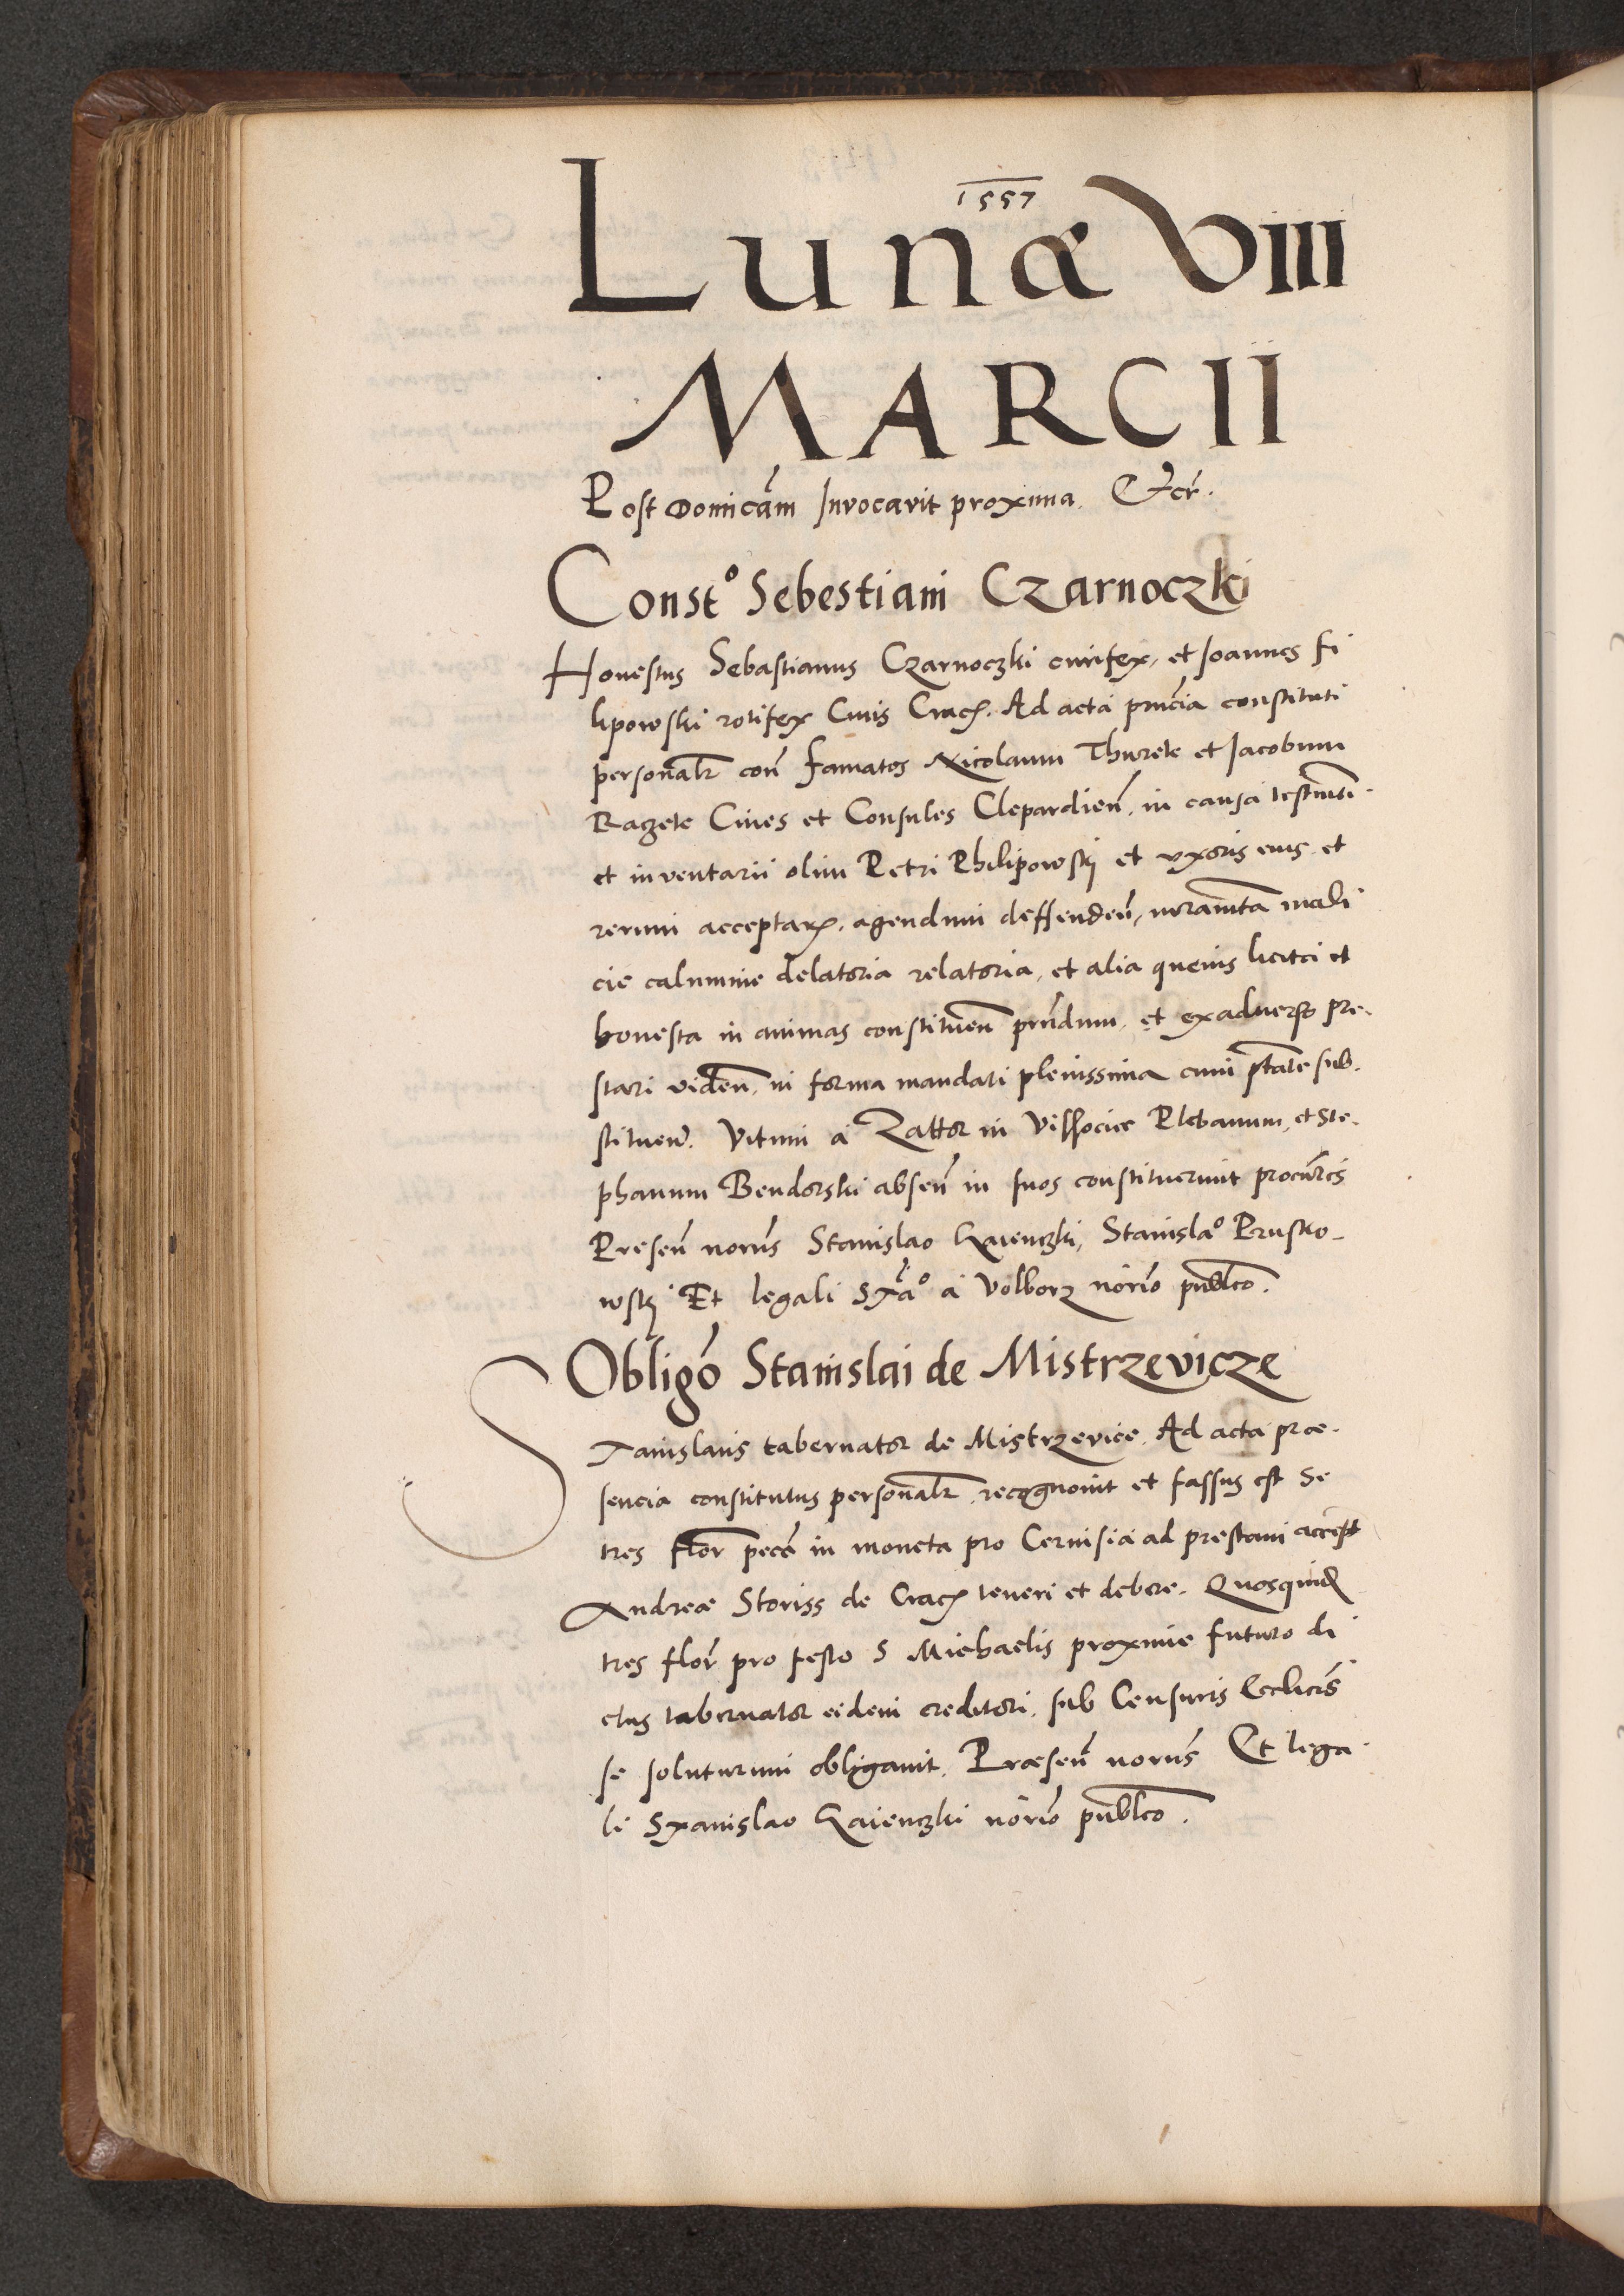 1557
Lunæ VIII
MARCII
Post Domicam Invocavit proxima. Etcr.
Constᵒ Sebestiani Czarnoczki
Honestus Sebastianus Czarnoczki currifex, et Joannes Fi
lipowski rotifex Civis Crac. Ad acta prncia constituti
personalr con famatos Nicolaum Thurek et Jacobum
Raczek Cives et Consules Clepardien. in causa testmti
et inventarii olim Petri Philipowski et vxoris eius et
rerum acceptar. agendum deffenden, iuramta mali
cie calumnie delatoria relatoria, et alia quevis licita et
honesta in animas constituen prndum, et ex adverso pre-
stari viden, in forma mandati plenissima cum ptate sub-
stituen. Vitum a Zattor in Vissocice Plebanum, et Ste-
phanum Bendorski absen in suos constituerunt procures
Presen norus Stanislao Zaienczki, Stanislaᵒ Prusko-
wski Et legali Staᵒ a Volborz norio publco.
Obligo Stanislai de Mistrzevicze
Stanislaus tabernator de Mistrzevice. Ad acta præ-
sencia constitutus personalr recognovit et fassus est se
tres flor pece in moneta pro Cervisia ad prestani accept
Andreæ Storiss de Crac teneri et debere. Quosquid
tres flor pro festo S Michaelis proxime futuro di
ctus tabernator eidem creditori, sub Censuris Ecclicis
se soluturum obligavit. Præsen norus Et lega
li Stanislao Zaienczki norio publco.